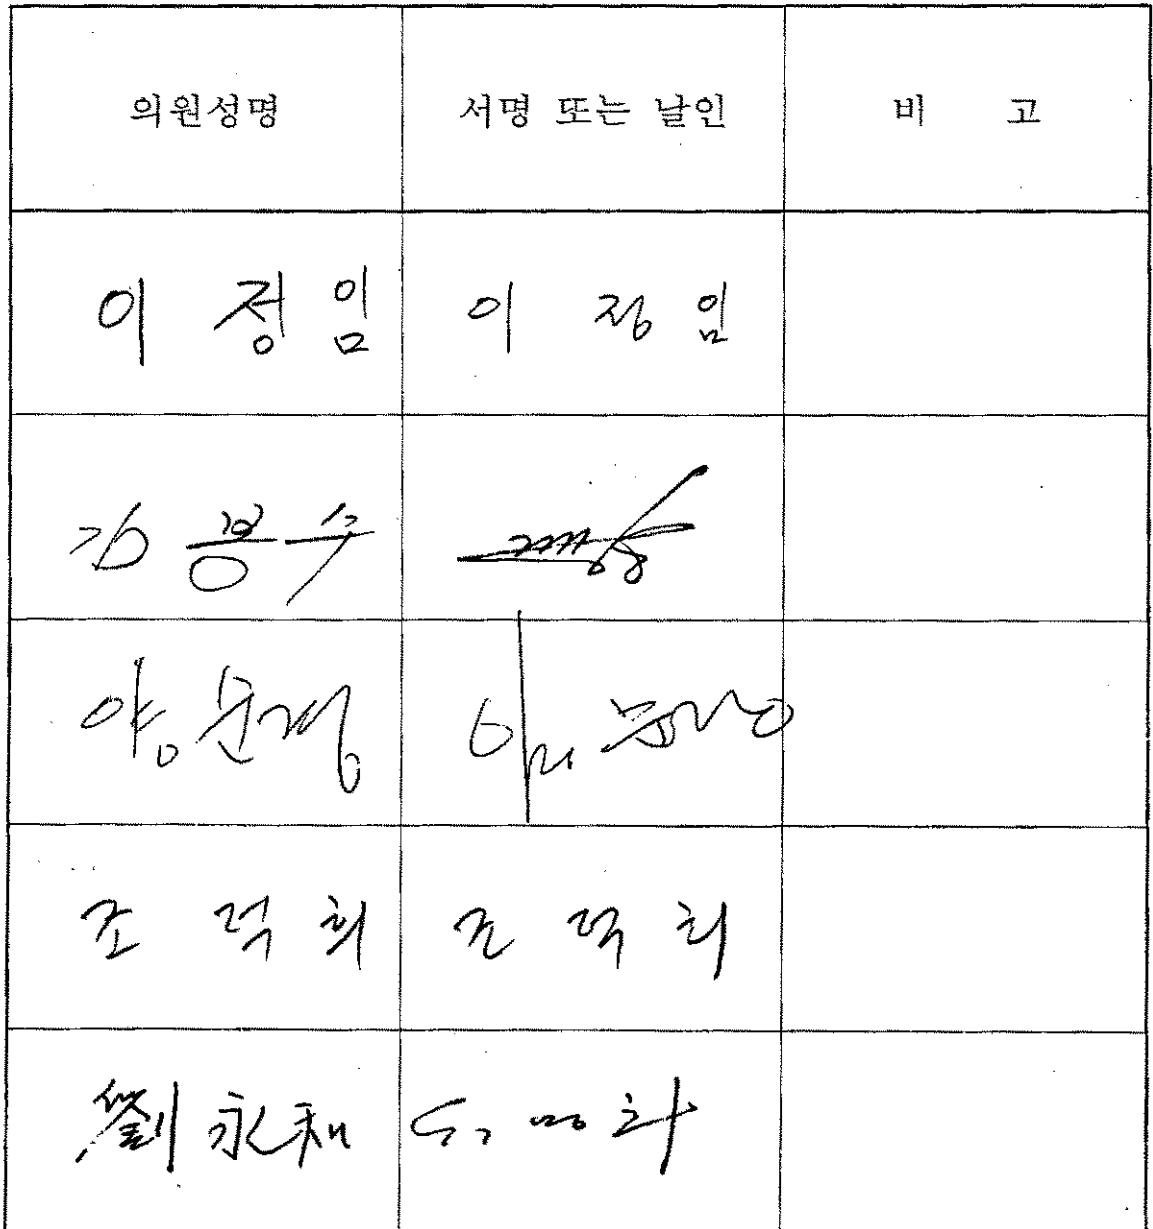 의원성명 서명 또는 날인 비 고
이 정 임 이 정 임
김 봉 수
양 운 경
조 덕 희 조 덕 희
劉 永 和